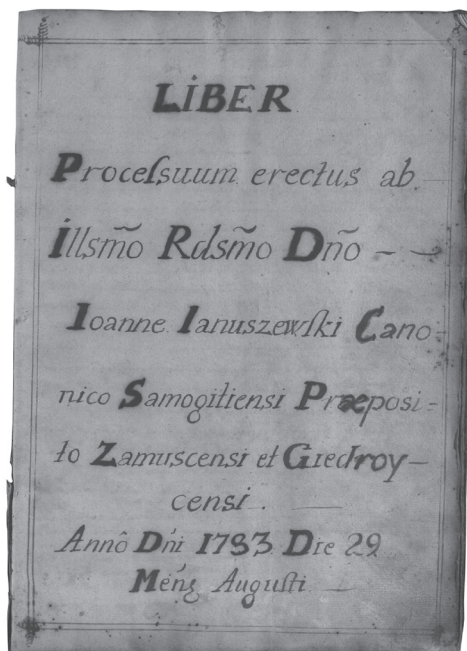 LIBER
Proceſsuum erectus ab
Illsm̃o Rdsm̃o Dño - -
Ioanne Ianuszewſki Cano-
nico Samogitiensi Præposi=
to Zamuscensi et Giedroy-
censi.
Annô Dńi 1783 Die 29
Augusti